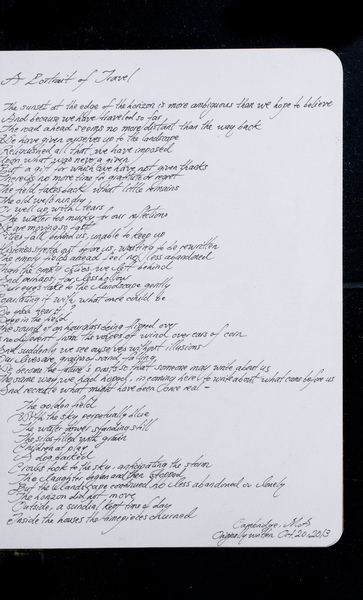 A Portrait of Travel
The sunset at the edge of the horizon is more ambiguous than we hope to believe
And because we have traveled so far
The road ahead seems no more distant than the way back
We have given ourselves up to the landscape
Relinquished all that we have imposed
Upon what was never a given
But a gift for which we have not given thanks
There is no more time for gratitude or regret
The field takes back what little remains
The old wells run dry
Or well up with tears
The water too murky for our reflections
We are moving so fast
Cities fall behind us, unable to keep up
out before us, waiting to be rewritten
The empty fields ahead feel no less abandoned
Than the empty we left behind
And perhaps, no less hollow
Our eyes take to the landscape gently
it with what once could be
Do you hear it?
Deep in the field
The sound of an hourglass being flipped over
from the voices of wind over ears of corn
And suddenly we see ourselves without illusions
Our lives are grains of sand falling
To become the future's past so that someone may write about us
The same way we had hoped, in coming here, to write about what came before us
And recreate what might have been once real -
The golden field
With the sky perpetually blue
The water tower standing still
The silos filled with grain
Children at play
A dog barked
Crows took to the sky, anticipating the storm
The laughter began and then stopped
But the landscape continued no less abandoned or lonely
The horizon did not move
Outside, a sundial kept time of day
Inside the houses the timepieces churned
Cambridge, MA
Originally written Oct. 20, 2013